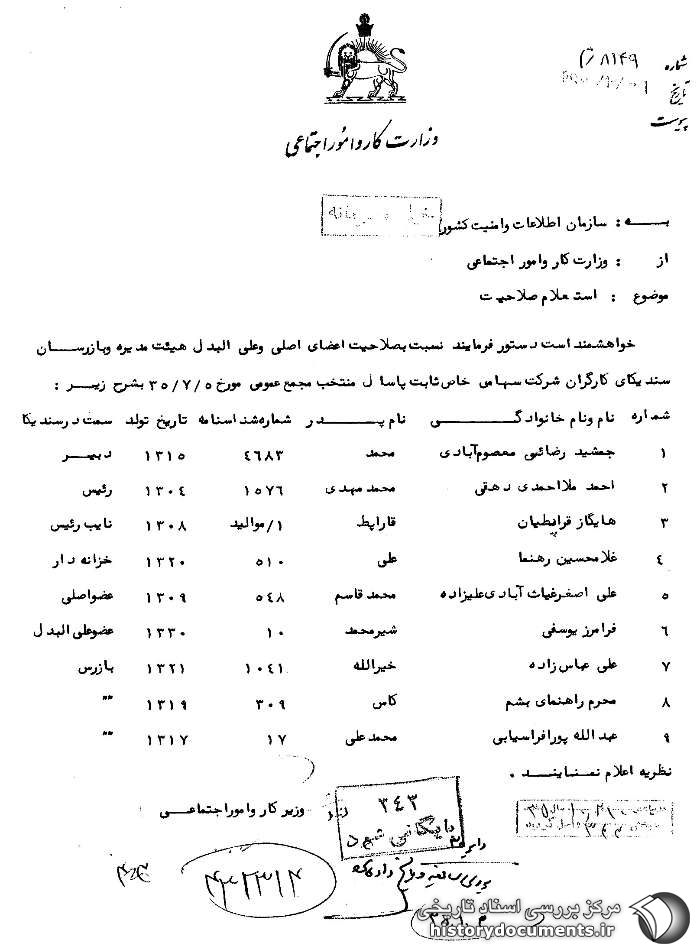 شماره ۸۱۴۹/
تاریخ
پیوست
وزارت کار و امور اجتماعی
بـــه : سازمان اطلاعات وامنیت کشور
از : وزارت کار وامور اجتماعی
موضوع : استعلام صلاحیت
خواهشمند است دستور فرمایند نسبت بصلاحیت اعضای اصلی وعلی البدل هیئت مدیره وبازرسان
سندیکای کارگران شرکت سهامی خاص ثابت پاسال منتخب مجمع عمومی مورخ ۳۵/۷/۵ بشرح زیر :
شماره نام ونام خانوادگی نام پدر شماره شناسنامه تاریخ تولد سمت در سندیکا
۱ جمشید رضائی معصوم‌آبادی محمد ۴۶۸۳ ۱۳۱۵ دبیر
۲ احمد ملااحمدی دهقی محمد مهدی ۱۵۷۶ ۱۳۰۴ رئیس
۳ هایگاز قراپطیان قاراپط ۱/موالید ۱۳۰۸ نایب رئیس
۴ غلامحسین رهنما علی ۵۱۰ ۱۳۲۰ خزانه دار
۵ علی اصغر غیاث آبادی علیزاده محمد قاسم ۵۴۸ ۱۳۰۹ عضواصلی
۶ فرامرز یوسفی شیرمحمد ۱۰ ۱۳۳۰ عضوعلی البدل
۷ علی عباس زاده خیرالله ۱۰۴۱ ۱۳۲۱ بازرس
۸ محرم راهنمای بشم کاس ۳۰۹ ۱۳۱۹ ""
۹ عبدالله پورافراسیابی محمدعلی ۱۷ ۱۳۱۷ ""
نظریه اعلام نمایند .
وزیر کار وامور اجتماعی
۳۴۳
بایگانی شود
مرکز بررسی اسناد تاریخی
historydocuments.ir